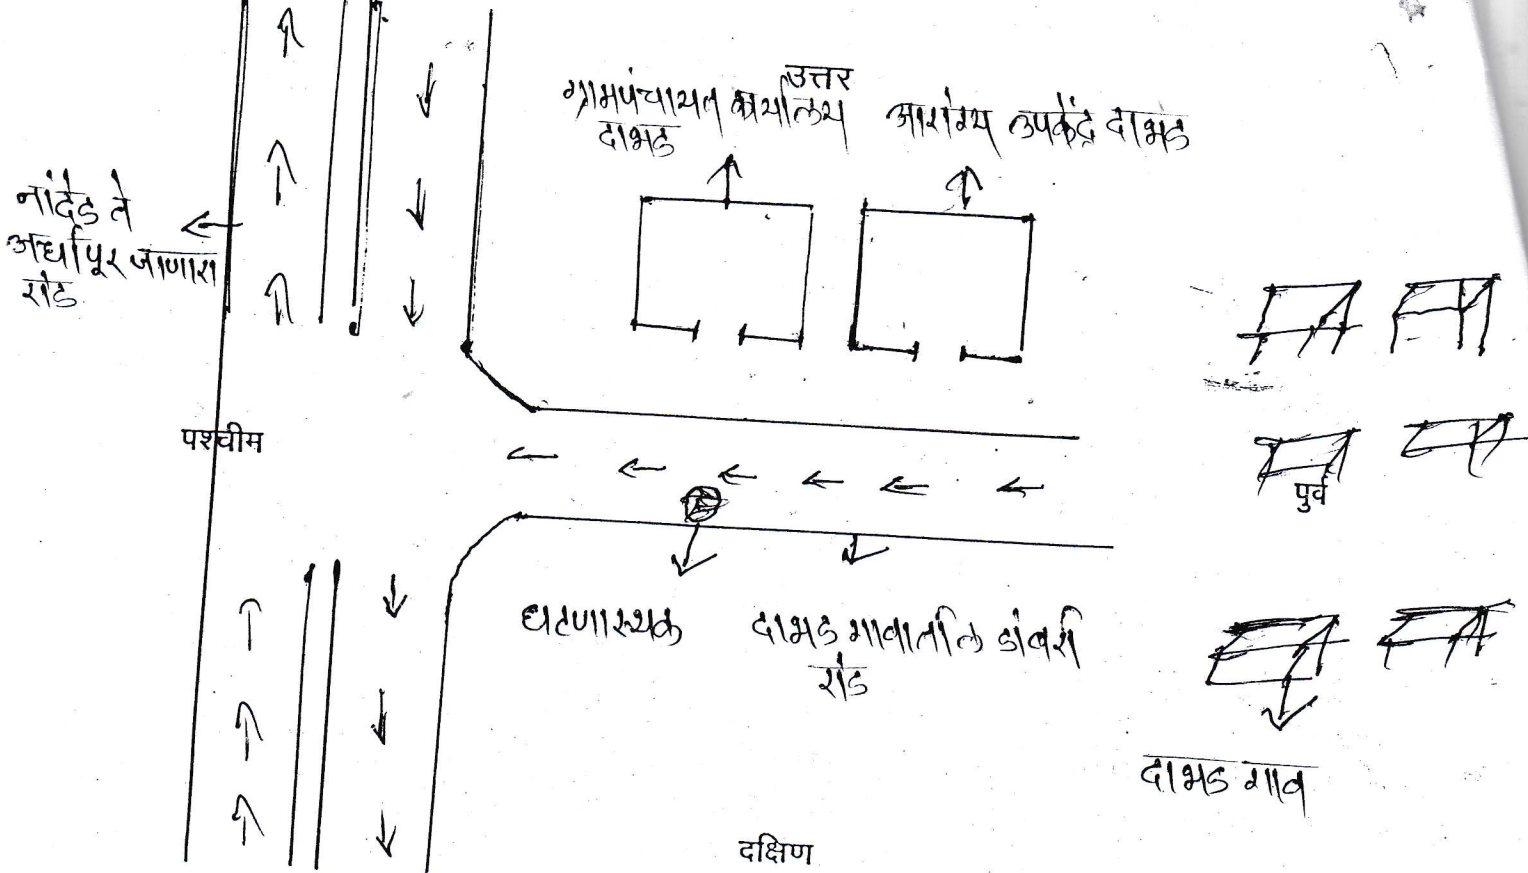 उत्तर
ग्रामपंचायत कार्यालय
दाभड
आरोग्य उपकेंद्र दाभड
नांदेड ते
अर्धापूर जाणारा
रोड
पश्चीम
पुर्व
घटणास्थळ
दाभड गावातील डांबरी
रोड
दाभड गाव
दक्षिण